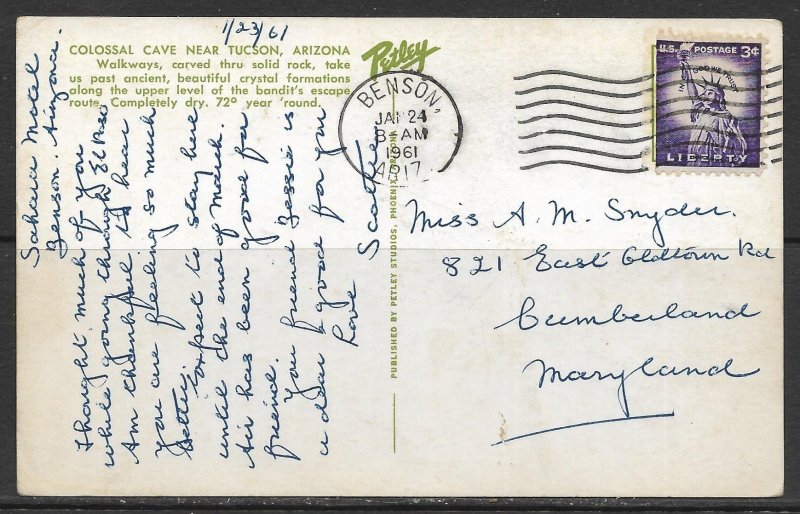 1/23/61
COLOSSAL CAVE NEAR TUCSON, ARIZONA
Walkways, carved thru solid rock, take
us past ancient, beautiful crystal formations
along the upper level of the bandit's escape
route. Completely dry. 72° year 'round.
Petley
BENSON,
JAN 24
8-AM
1961
ARIZ
U.S. POSTAGE 3¢
IN GOD WE TRUST
LIBERTY
PUBLISHED BY PETLEY STUDIOS, PHOENIX, ARIZONA
Sahara Motel
Benson. Arizona.
Thought much of you
while going through El Paso
Am thankful to hear
you are feeling so much
better. Expect to stay here
until the end of March.
Air has been good for
friend.
You friend Bessie is
a dear & good for you
Love
Miss A. M. Snyder.
821 East Oldtown Rd
Cumberland
Maryland